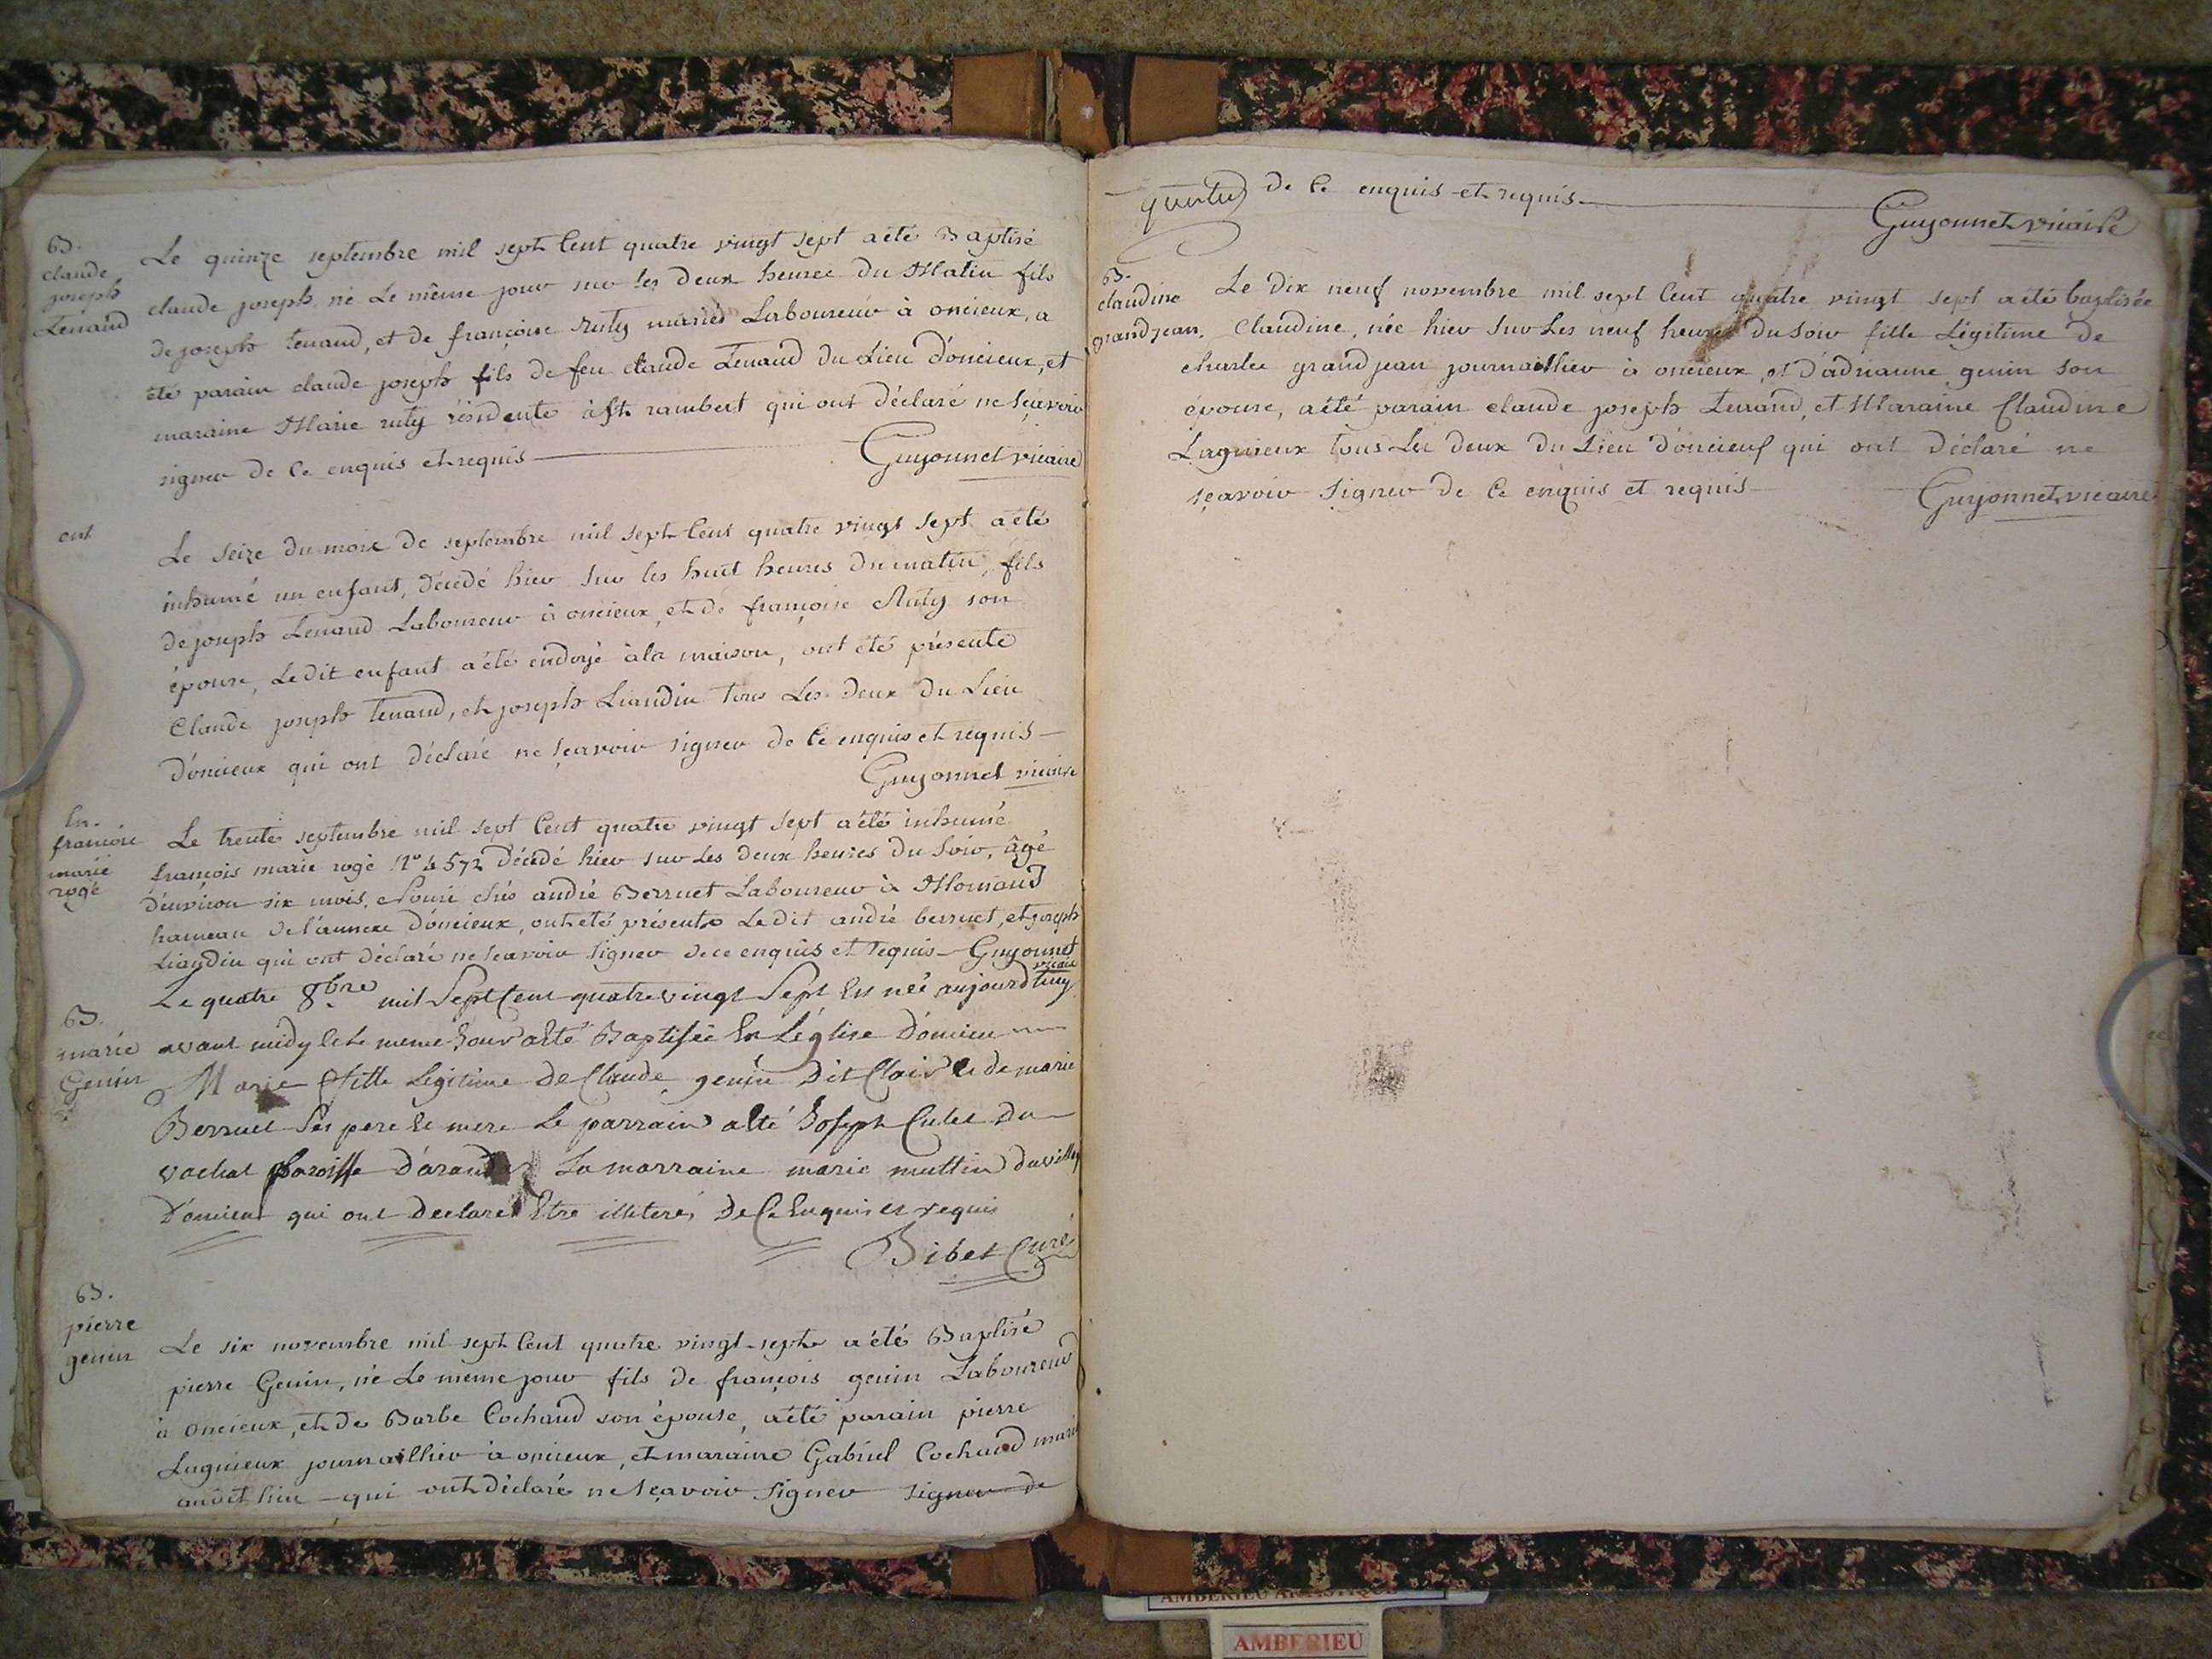 B.
claude
joseph
Tenand
Le quinze septembre mil sept Cent quatre vingt sept a été Baptisé
claude joseph né Le même jour sur les deux heures du Matin fils
de joseph tenand, et de françoise ruty mariés Laboureur à oncieux, a
été parain claude joseph fils de feu claude Tenand du Lieu d'oncieux, et
maraine Marie ruty résidente à st. rambert qui ont déclaré ne sçavoir
signer de Ce enquis et requis
Guyonnet vicaire
ent
Le seize du mois de septembre mil sept Cent quatre vingt sept a été
inhumé un enfant, décédé hier sur les huit heures du matin, fils
de joseph Tenand Laboureur à oncieux, et de françoise Ruty son
épouse, Le dit enfant a été endoyé à la maison, ont été présents
Claude joseph tenand, et joseph Liaudin tous Les deux du Lieu
d'oncieux qui ont déclaré ne sçavoir signer de Ce enquis et requis
Guyonnet vicaire
En.
francois
marie
rogé
Le trente septembre mil sept Cent quatre vingt sept a été inhumé
françois marie rogé N° 4572 décédé hier sur Les deux heures du soir, âgé
d'environ six mois, chés andré Berruet Laboureur à
hameau de l'annexe d'oncieux, ont été présents Le dit andré berruet, et joseph
Liaudin qui ont déclaré ne sçavoir signer de ce enquis et requis Guyonnet
vicaire
B.
marie
Genin
Le quatre 8bre mil Sept Cent quatre vingt Sept Est née aujourdhuy
avant midy et Le meme Jour a Eté Baptisée En L'église D'oncieu
Marie fille Legitime De Claude genin Dit Clair et de marie
Berruet Ses pere et mere Le parrain a Eté Joseph Culet Du
vachat paroisse D'arandas La marraine marie muttin du village
D'oncieux qui ont Declaré Etre illeterés De Ce Enquis et requis
Bibet Curé
B.
pierre
genin
Le six novembre mil sept Cent quatre vingt-sept a été Baptisé
pierre Genin, né Le meme jour fils de françois genin Laboureur
à oncieux, et de Barbe Cochand son épouse, a été parain pierre
Lagnieux journaillier à oncieux, et maraine Gabriel Cochand
audit lieu - qui ont déclaré ne sçavoir signer signer de
de Ce enquis et requis
Guyonnet vicaire
B.
claudine
grandjean.
Le dix neuf novembre mil sept Cent quatre vingt sept a été baptisée
Claudine, née hier sur Les neuf heures du soir fille Légitime de
charles grand jean journaillier à oncieux et d'adrianne genin son
épouse, a été parain claude joseph Tenand, et Maraine Claudine
Lagnieux tous Les deux du Lieu d'oncieux qui ont déclaré ne
sçavoir signer de Ce enquis et requis
Guyonnet vicaire
AMBERIEU